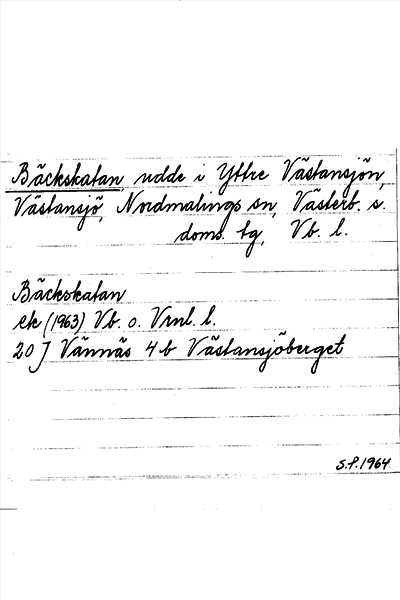 Bäckskatan, udde i Yttre Västansjön,
Västansjö, Nordmalings sn, Västerb. s.
doms. tg, Vb. l.
Bäckskatan
ek (1963) Vb. o. Vrml. l.
20 J Vännäs 4b Västansjöberget
S.P. 1964